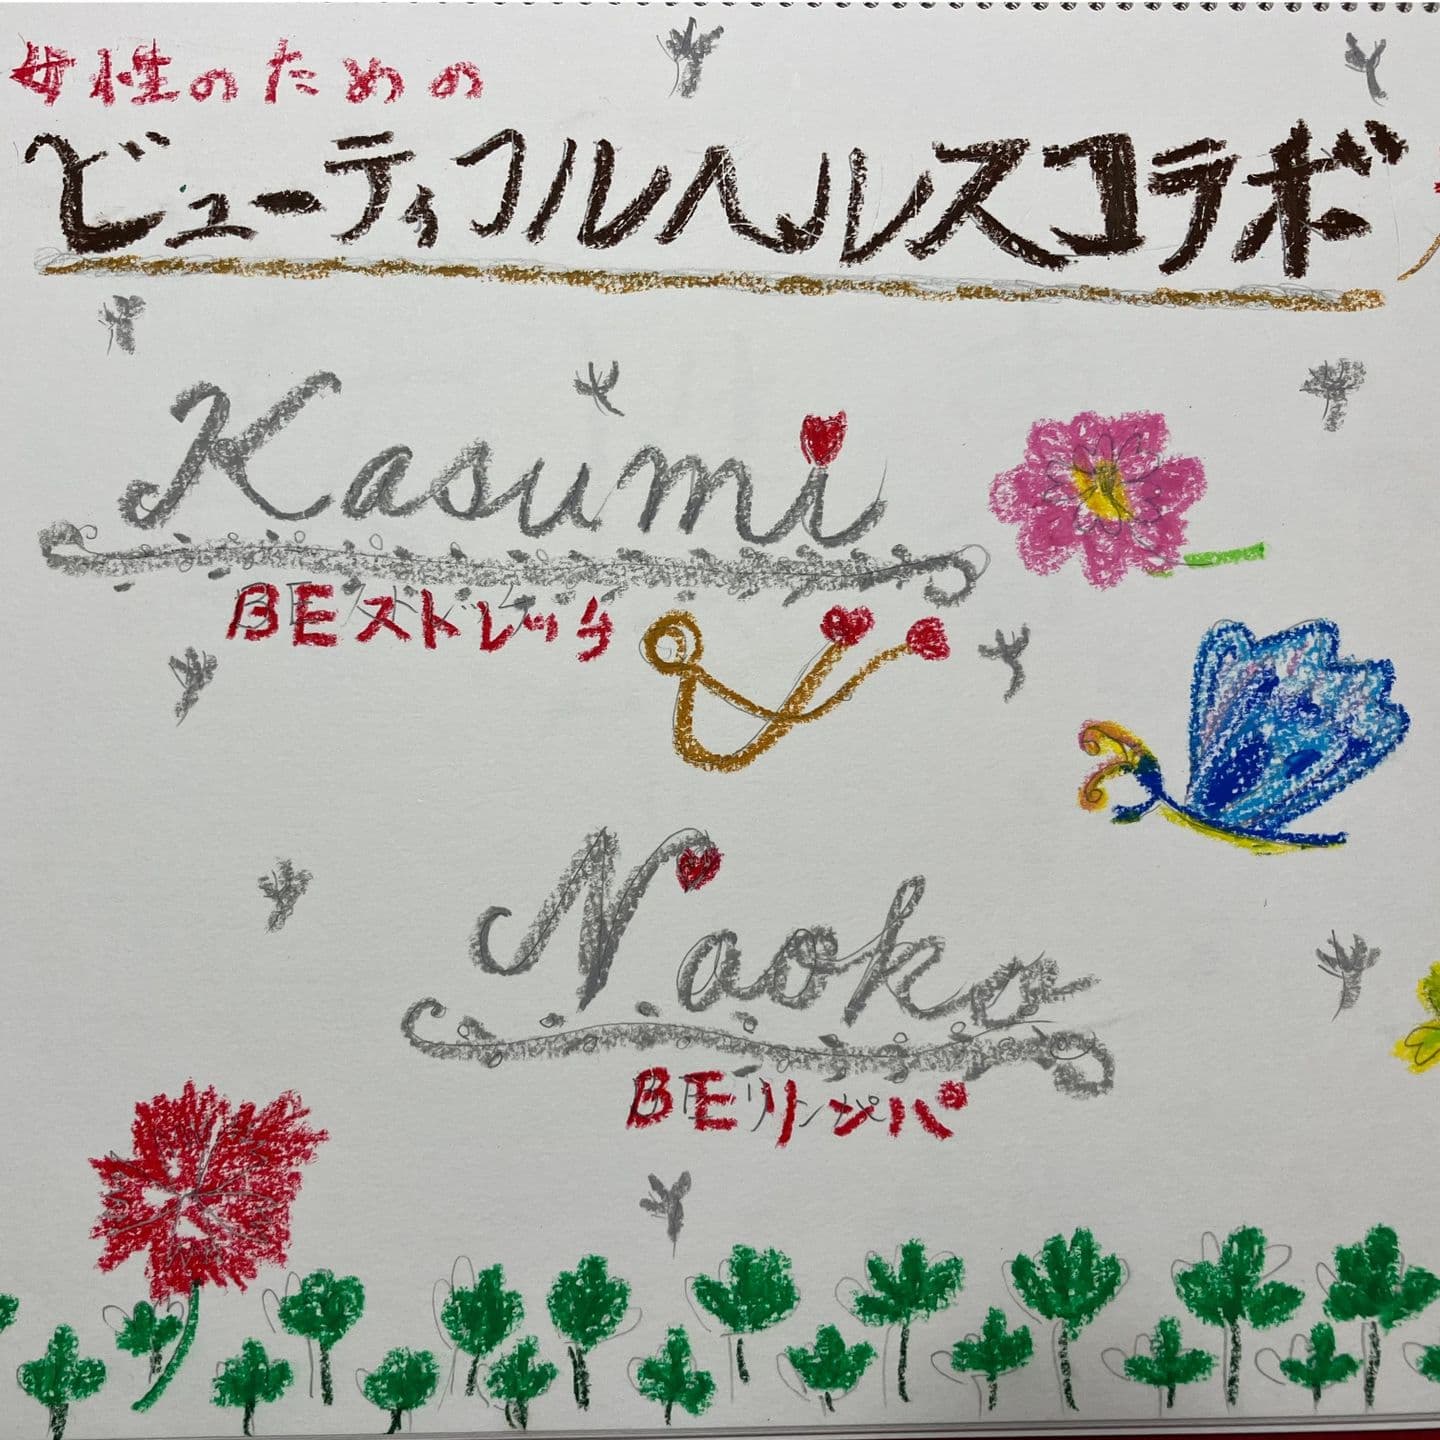 女性のための
ビューティフルヘルスコラボ
Kasumi
BEストレッチ
Naoko
BEリンパ